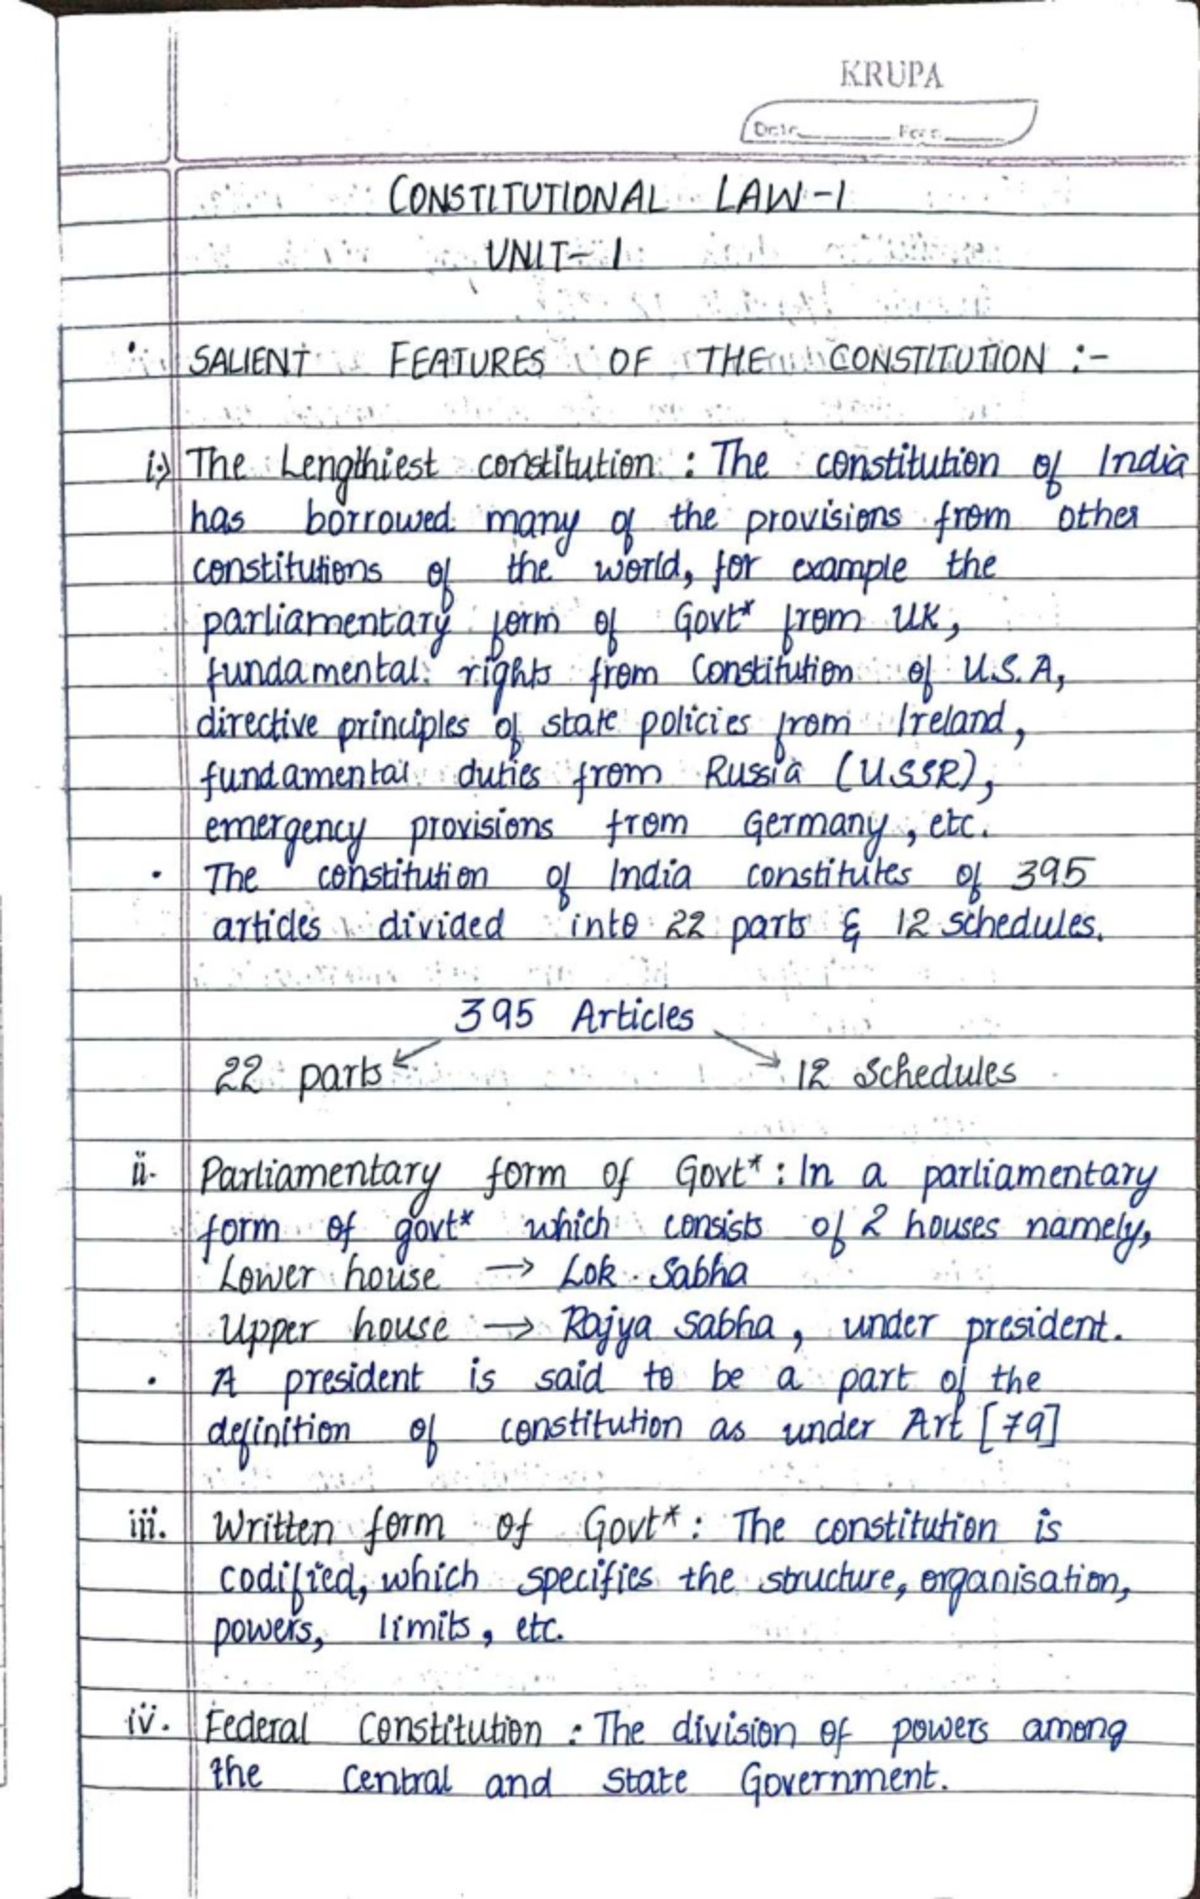 KRUPA
Date
CONSTITUTIONAL LAW-1
UNIT-1
• SALIENT FEATURES OF THE CONSTITUTION :-
i.) The Lengthiest constitution : The constitution of India
has borrowed many of the provisions from other
constitutions of the world, for example the
parliamentary form of Govt* from UK,
fundamental rights from Constitution of U.S.A,
directive principles of state policies from Ireland,
fundamental duties from Russia (USSR),
emergency provisions from Germany, etc.
• The constitution of India constitutes of 395
articles divided into 22 parts & 12 schedules.
395 Articles
22 parts 12 Schedules
ii. Parliamentary form of Govt* : In a parliamentary
form of govt* which consists of 2 houses namely,
Lower house → Lok Sabha
Upper house → Rajya Sabha, under president.
• A president is said to be a part of the
definition of constitution as under Art [79]
iii. Written form of Govt* : The constitution is
codified, which specifies the structure, organisation,
powers, limits, etc.
iv. Federal Constitution : The division of powers among
the Central and State Government.